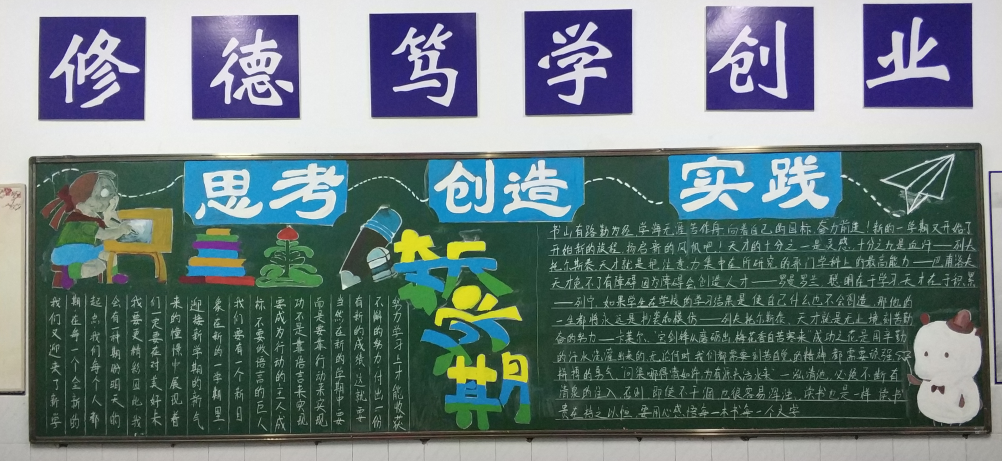 修德笃学创业
思考
创造
实践
新学期
书山有路勤为径 学海无涯苦作舟 向着自己的目标 奋力前进！新的一学期又开始了
开始新的旅程 扬启新的风帆吧！天才的十分之一是灵感 十分之九是血汗——列夫
托尔斯泰 天才就是把注意力集中在所研究的那门学科上的最高能力——巴甫洛夫
天才免不了有障碍 因为障碍会创造人才——罗曼罗兰 聪明在于学习天才在于积累
——列宁 如果学生在学校的学习结果是使自己什么也不会创造 那他的
一生都将永远是 和模仿——列夫托尔斯泰 天才就是无止境刻苦勤
奋的努力——卡莱尔 宝剑锋从磨砺出 梅花香自苦寒来 成功之花是用辛勤
的汗水浇灌出来的 无论何时我们都需要有 的精神 都需要顽强
拼搏的勇气 问渠哪得清如许 为有源头活水来 一泓清池 必须不断有
清泉的注入 否则 即使不干涸 也很容易浮浊 读书也是一样 读书
贵在持之以恒 要用心感悟每一本书每一个文字
我们又迎来了新学
期 在每一个全新的
起点 我们每个人都
会有一种期盼明天的
我要更精彩 因此 我
们一定要在对美好未
来的憧憬中 展现着
迎接新学期的新气
象 在新的一学期里
我们要有一个新目
标 不要做语言的巨人
要成为行动的主人 成
功不是靠语言来实现
而是要靠行动来实现
当然 在新的学期中要
有新的成绩 这就要
不懈的努力 付出一份
努力 学习上才能收获